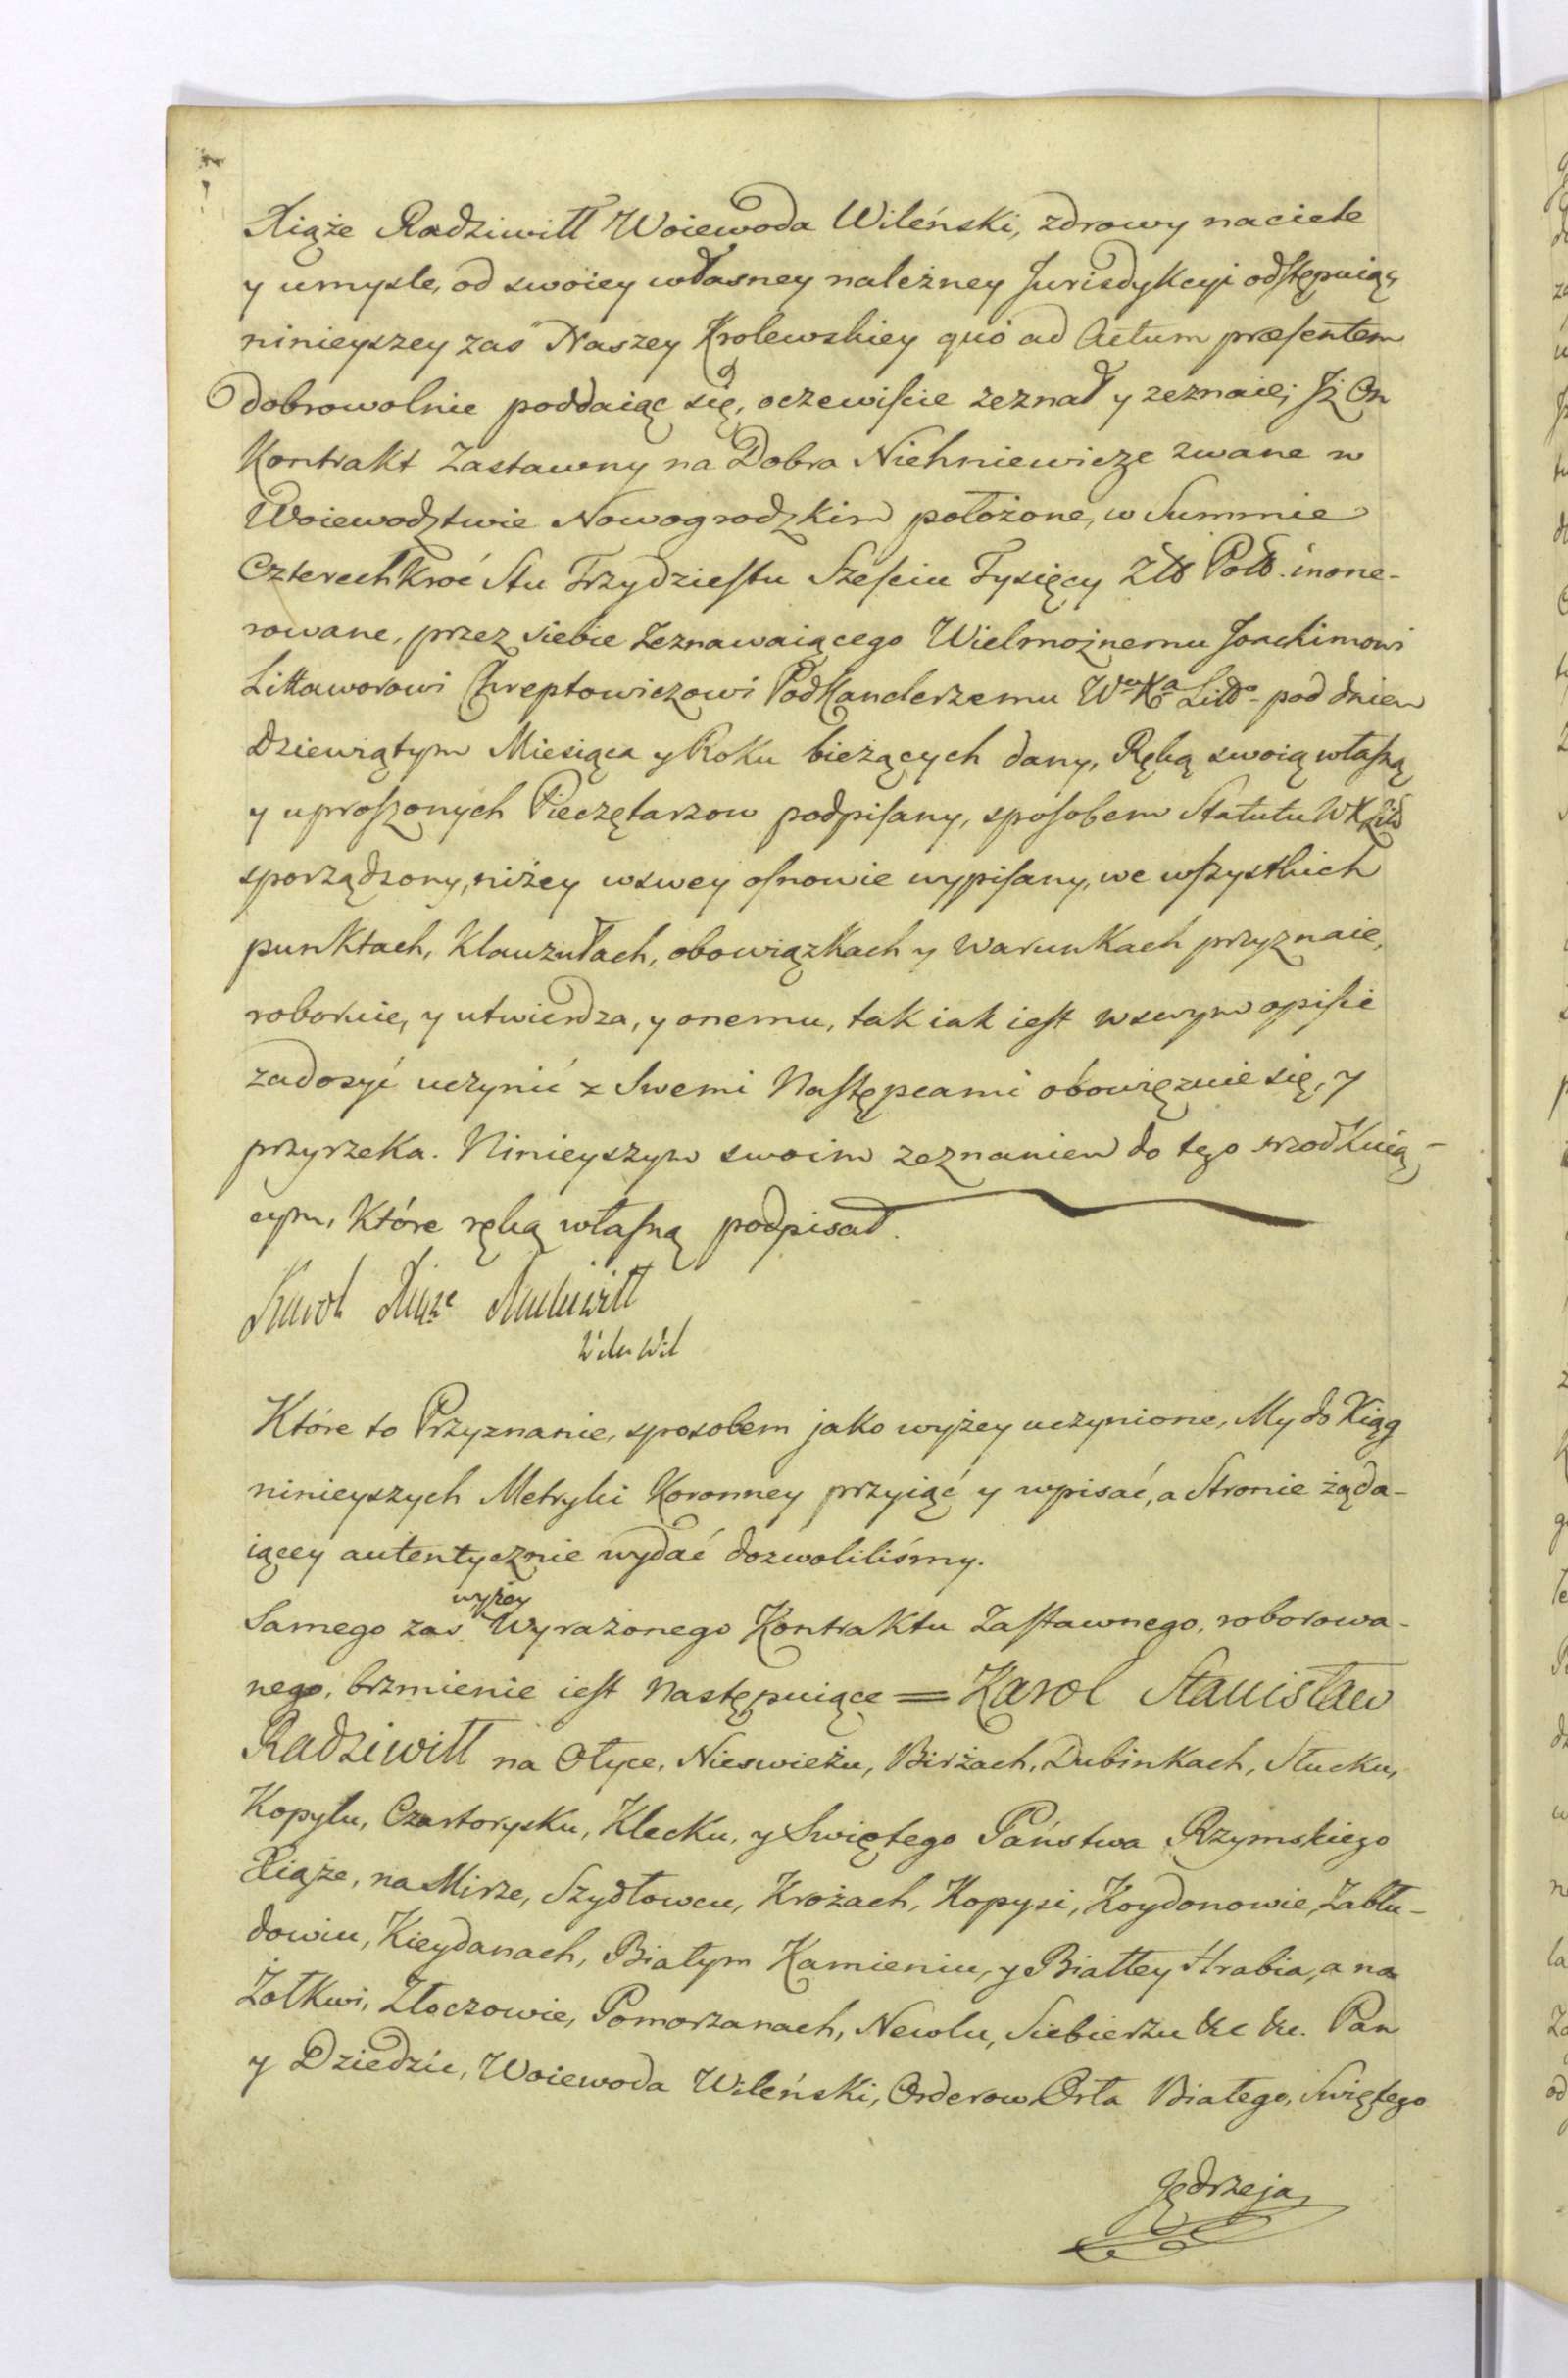 Xiąże Radziwiłł Woiewoda Wileński, zdrowy naciele
y umysle, od swoiey własney należney Jurisdykcyi odstępuiąc,
ninieyszey zaś Naszey Krolewskiey quo ad Actum præsentem
dobrowolnie poddaiąc się, oczewiście zeznał y zeznaie; Jż On
Kontrakt Zastawny na Dobra Niehniewicze zwane w
Woiewodztwie Nowogrodzkim położone, w Summie
CzterechKroć Stu Trzydziestu Sześciu Tysięcy Złł Poll. inone-
rowane, przez siebie Zeznawaiącego Wielmożnemu Joachimowi
Littaworowi Chreptowiczowi PodKanclerzemu Wgo Xa Litto pod dniem
Dziewiątym Miesiąca y Roku bieżących dany, Ręką swoią własną
y uproszonych Pieczętarzow podpisany, sposobem Statutu WXLitt
sporządzony, niżey wswey osnowie wypisany, we wszystkich
punktach, Klauzułach, obowiązkach y Warunkach przyznaie,
roboruie, y utwierdza, y onemu, tak iak iest wswym opisie
zadosyć uczynić z Swemi Następcami obowięzuie się, y
przyrzeka. Ninieyszym swoim zeznaniem do tego srzodkuią-
cym, Które ręką własną podpisał.
Karol Xiąże Radziwiłł
W da Wil
Które to Przyznanie, sposobem jako wyżey uczynione, My do Xiąg
ninieyszych Metryki Koronney przyiąć y wpisać, a Stronie żąda-
iącey autentycznie wydać dozwoliliśmy.
wyżey
Samego zaś Wyrażonego Kontraktu Zastawnego, roborowa-
nego, brzmienie iest Następuiące = Karol Stanisław
Radziwiłł na Ołyce, Nieswieżu, Birżach, Dubinkach, Słucku,
Kopylu, Czartorysku, Klecku, y Swiętego Państwa Rzymskiego
Xiąże, na Mirze, Szydłowcu, Krożach, Kopysi, Koydonowie, Zabłu-
dowiu, Kieydanach, Białym Kamieniu, y Białłey Hrabia, a na
Żołkwi, Złoczowie, Pomorzanach, Newlu, Siebierzu &c &c. Pan
y Dziedzic, Woiewoda Wileński, Orderow Orła Białego, Swiętego
Jędrzeja